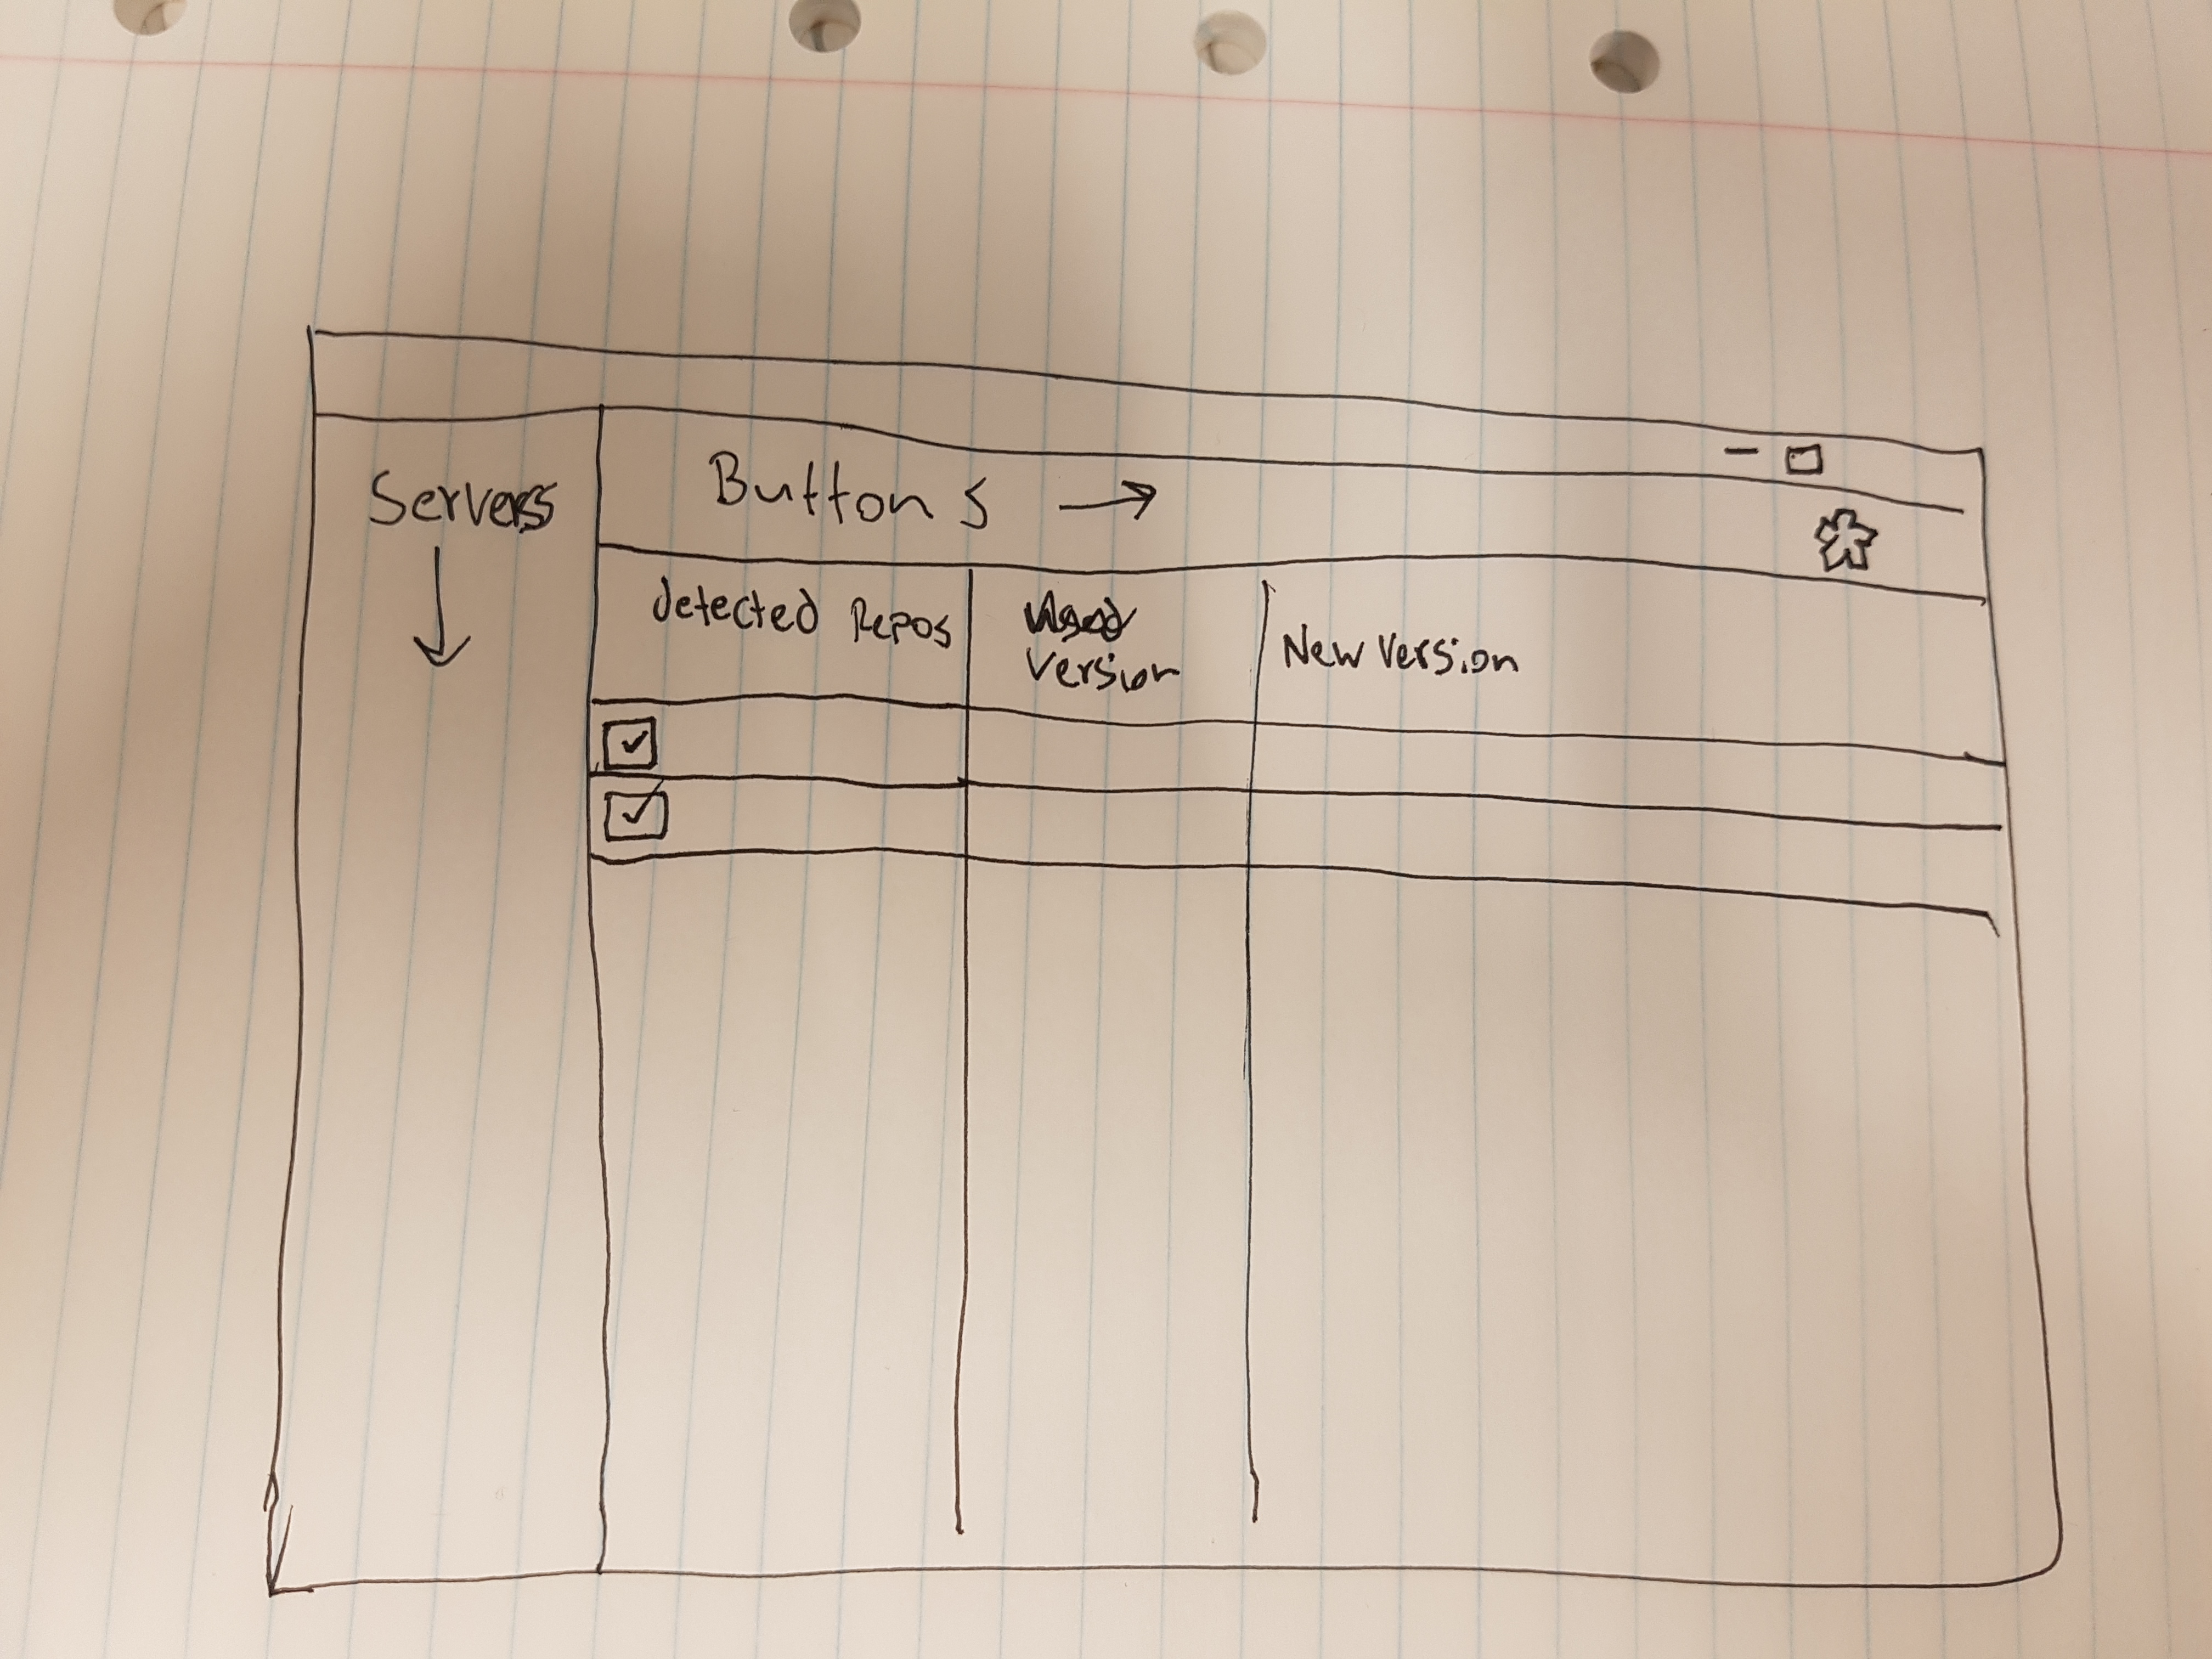 Servers
Buttons
detected Repos
Used
Version
New Version